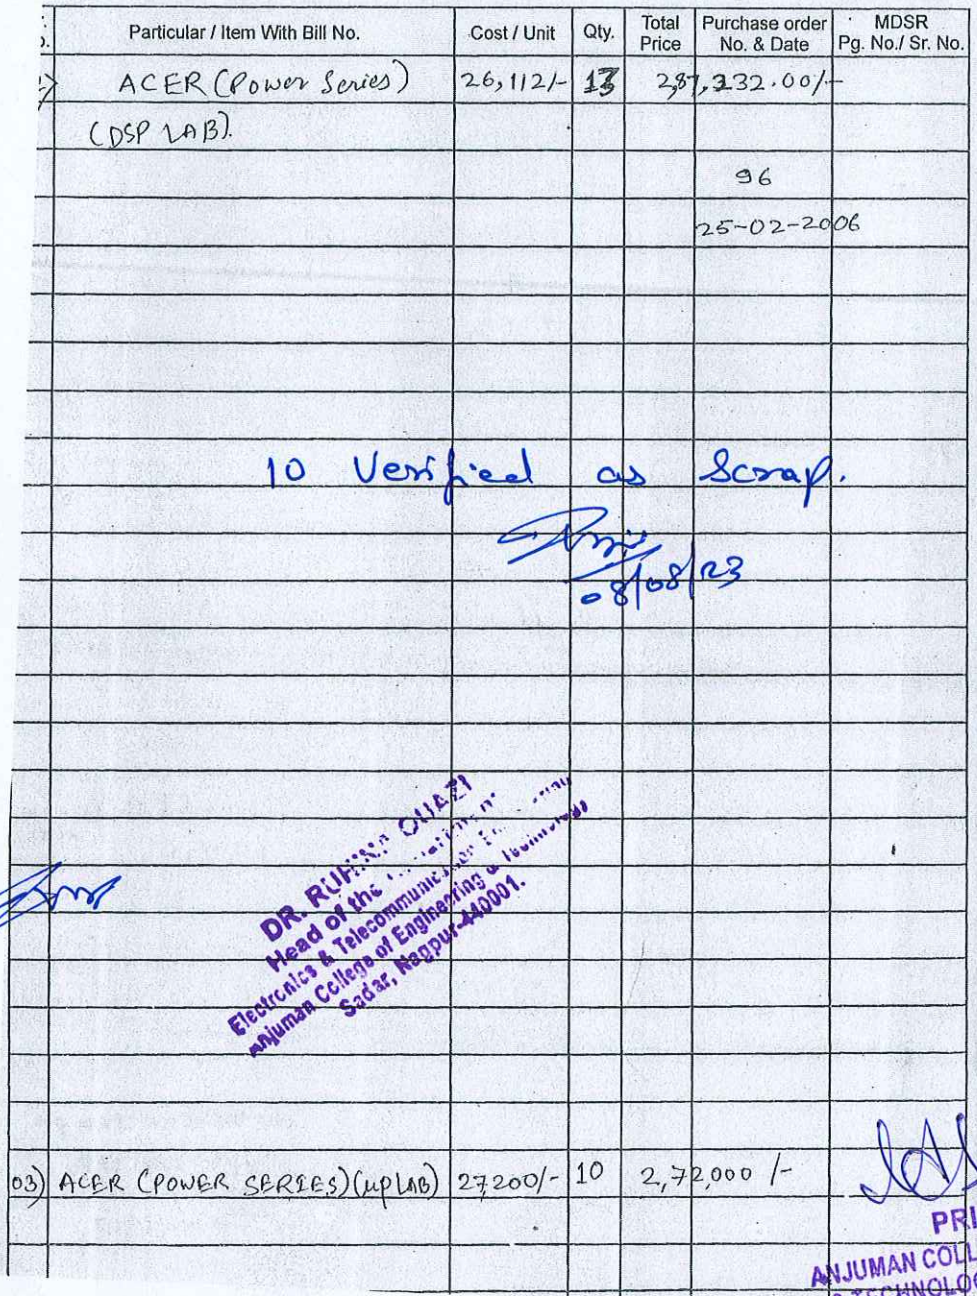 Particular / Item With Bill No. Cost / Unit Qty. Total Price Purchase order No. & Date MDSR Pg. No./ Sr. No.
ACER (Power Series) 26,112/- 2,87,232.00/-
(DSP LAB).
96
25-02-2006
10 Verified as Scrap.
08/08/23
DR. RUHINA QUAZI
Head of the
Electronics & Telecommunication
Anjuman College of Engineering & Technology
Sadar, Nagpur-440001.
03) ACER (POWER SERIES) (μp LAB) 27,200/- 10 2,72,000 /-
PRI
ANJUMAN COLL
& TECHNOLOG